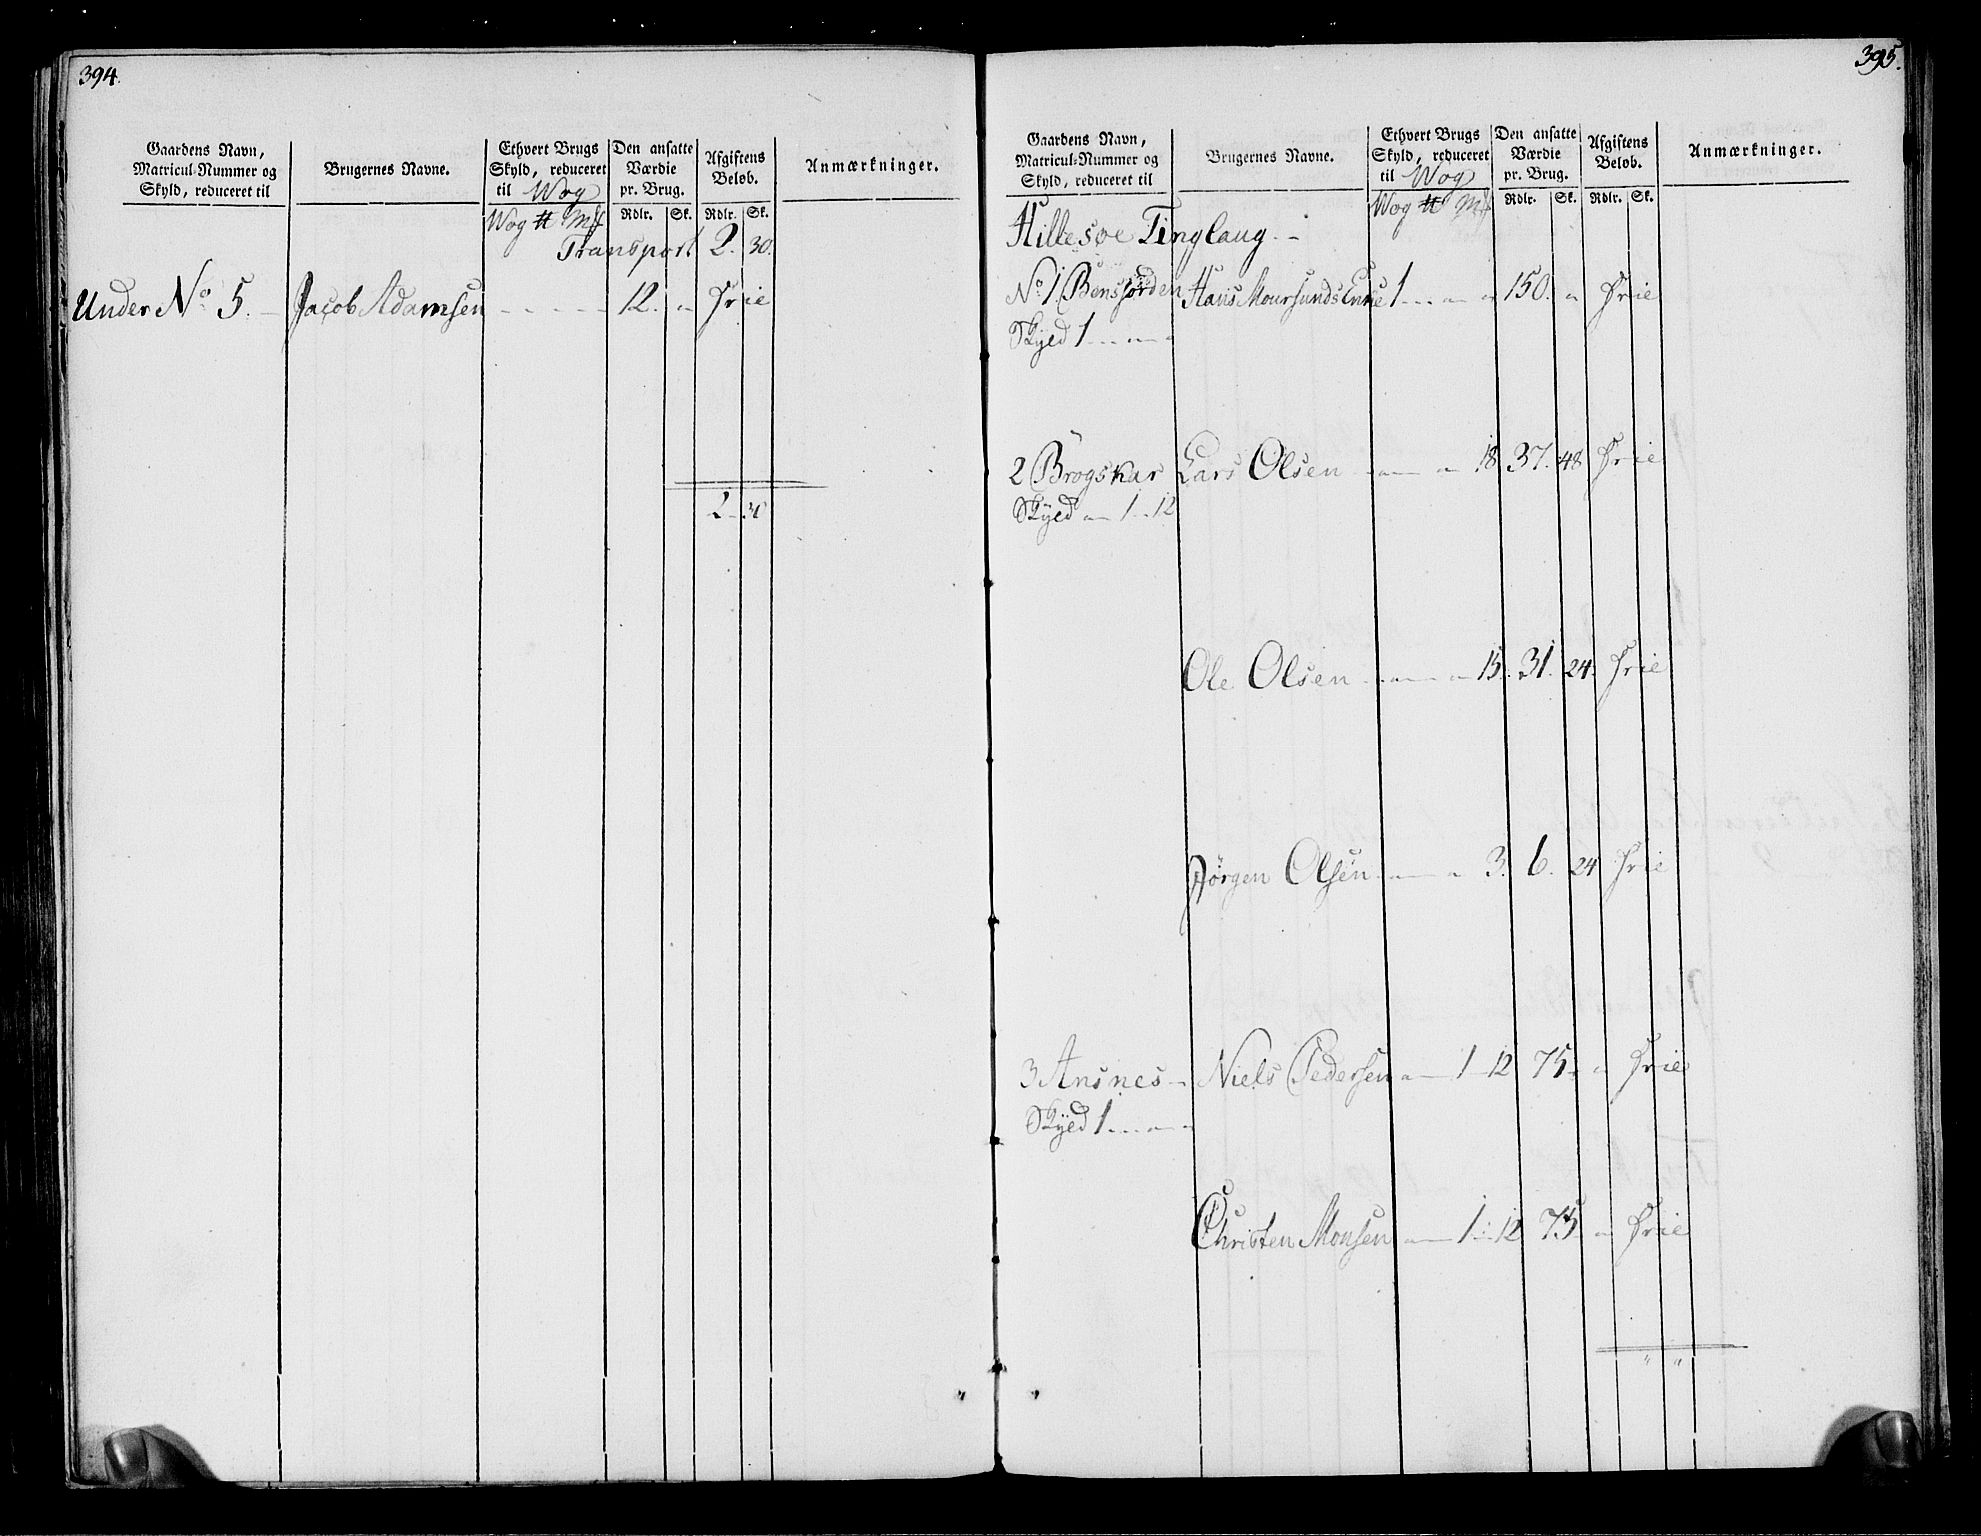 394.
Gaardens Navn, Matricul-Nummer og Skyld, reduceret til
Brugernes Navne.
Ethvert Brugs Skyld, reduceret til Wog
Den ansatte Værdie pr. Brug.
Afgiftens Beløb.
Anmærkninger.
Wog ℔ Mk Rdlr. Sk. Rdlr. Sk.
Transport 2. 30.
Under No 5. - Jacob Adamsen - - - - - 12. „ Frie
2 - 30
395.
Gaardens Navn, Matricul-Nummer og Skyld, reduceret til
Brugernes Navne.
Ethvert Brugs Skyld, reduceret til Wog
Den ansatte Værdie pr. Brug.
Afgiftens Beløb.
Anmærkninger.
Wog ℔ Mk Rdlr. Sk. Rdlr. Sk.
Hillesøe Tinglaug. -
No 1 Bensjorden Hans Moursunds Enke 1 - - „ - „ 150. „ Frie
Skyld 1 - - „ - „
2 Brogskar Lars Olsen - „ - „ - 18. 37. 48 Frie
Skyld „ - 1 - 12
Ole Olsen - - „ - „ - 15. 31. 24. Frie
Jørgen Olsen - „ - „ 3. 6. 24 Frie
3 Ansnes - Niels Pedersen „ - 1 - 12 75. „ Frie
Skyld 1 - - „ - „
Christen Monsen „ - 1 - 12 75. „ Frie
„ „